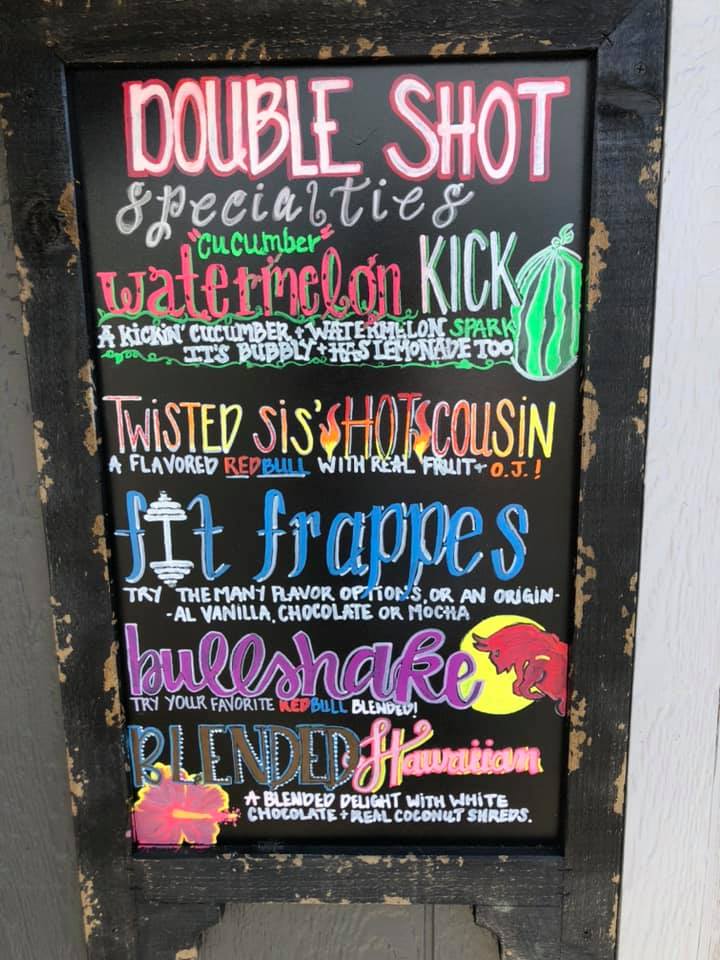 DOUBLE SHOT
specialties
"cucumber"
watermelon KICK
A KICKIN' CUCUMBER + WATERMELON SPARK
IT'S BUBBLY + HAS LEMONADE TOO
TWISTED SIS'S HOT COUSIN
A FLAVORED REDBULL WITH REAL FRUIT + O.J.!
fit frappes
TRY THE MANY FLAVOR OPTIONS, OR AN ORIGIN-
-AL VANILLA, CHOCOLATE OR MOCHA
bullshake
TRY YOUR FAVORITE REDBULL BLENDED!
BLENDED Hawaiian
A BLENDED DELIGHT WITH WHITE
CHOCOLATE + REAL COCONUT SHREDS.